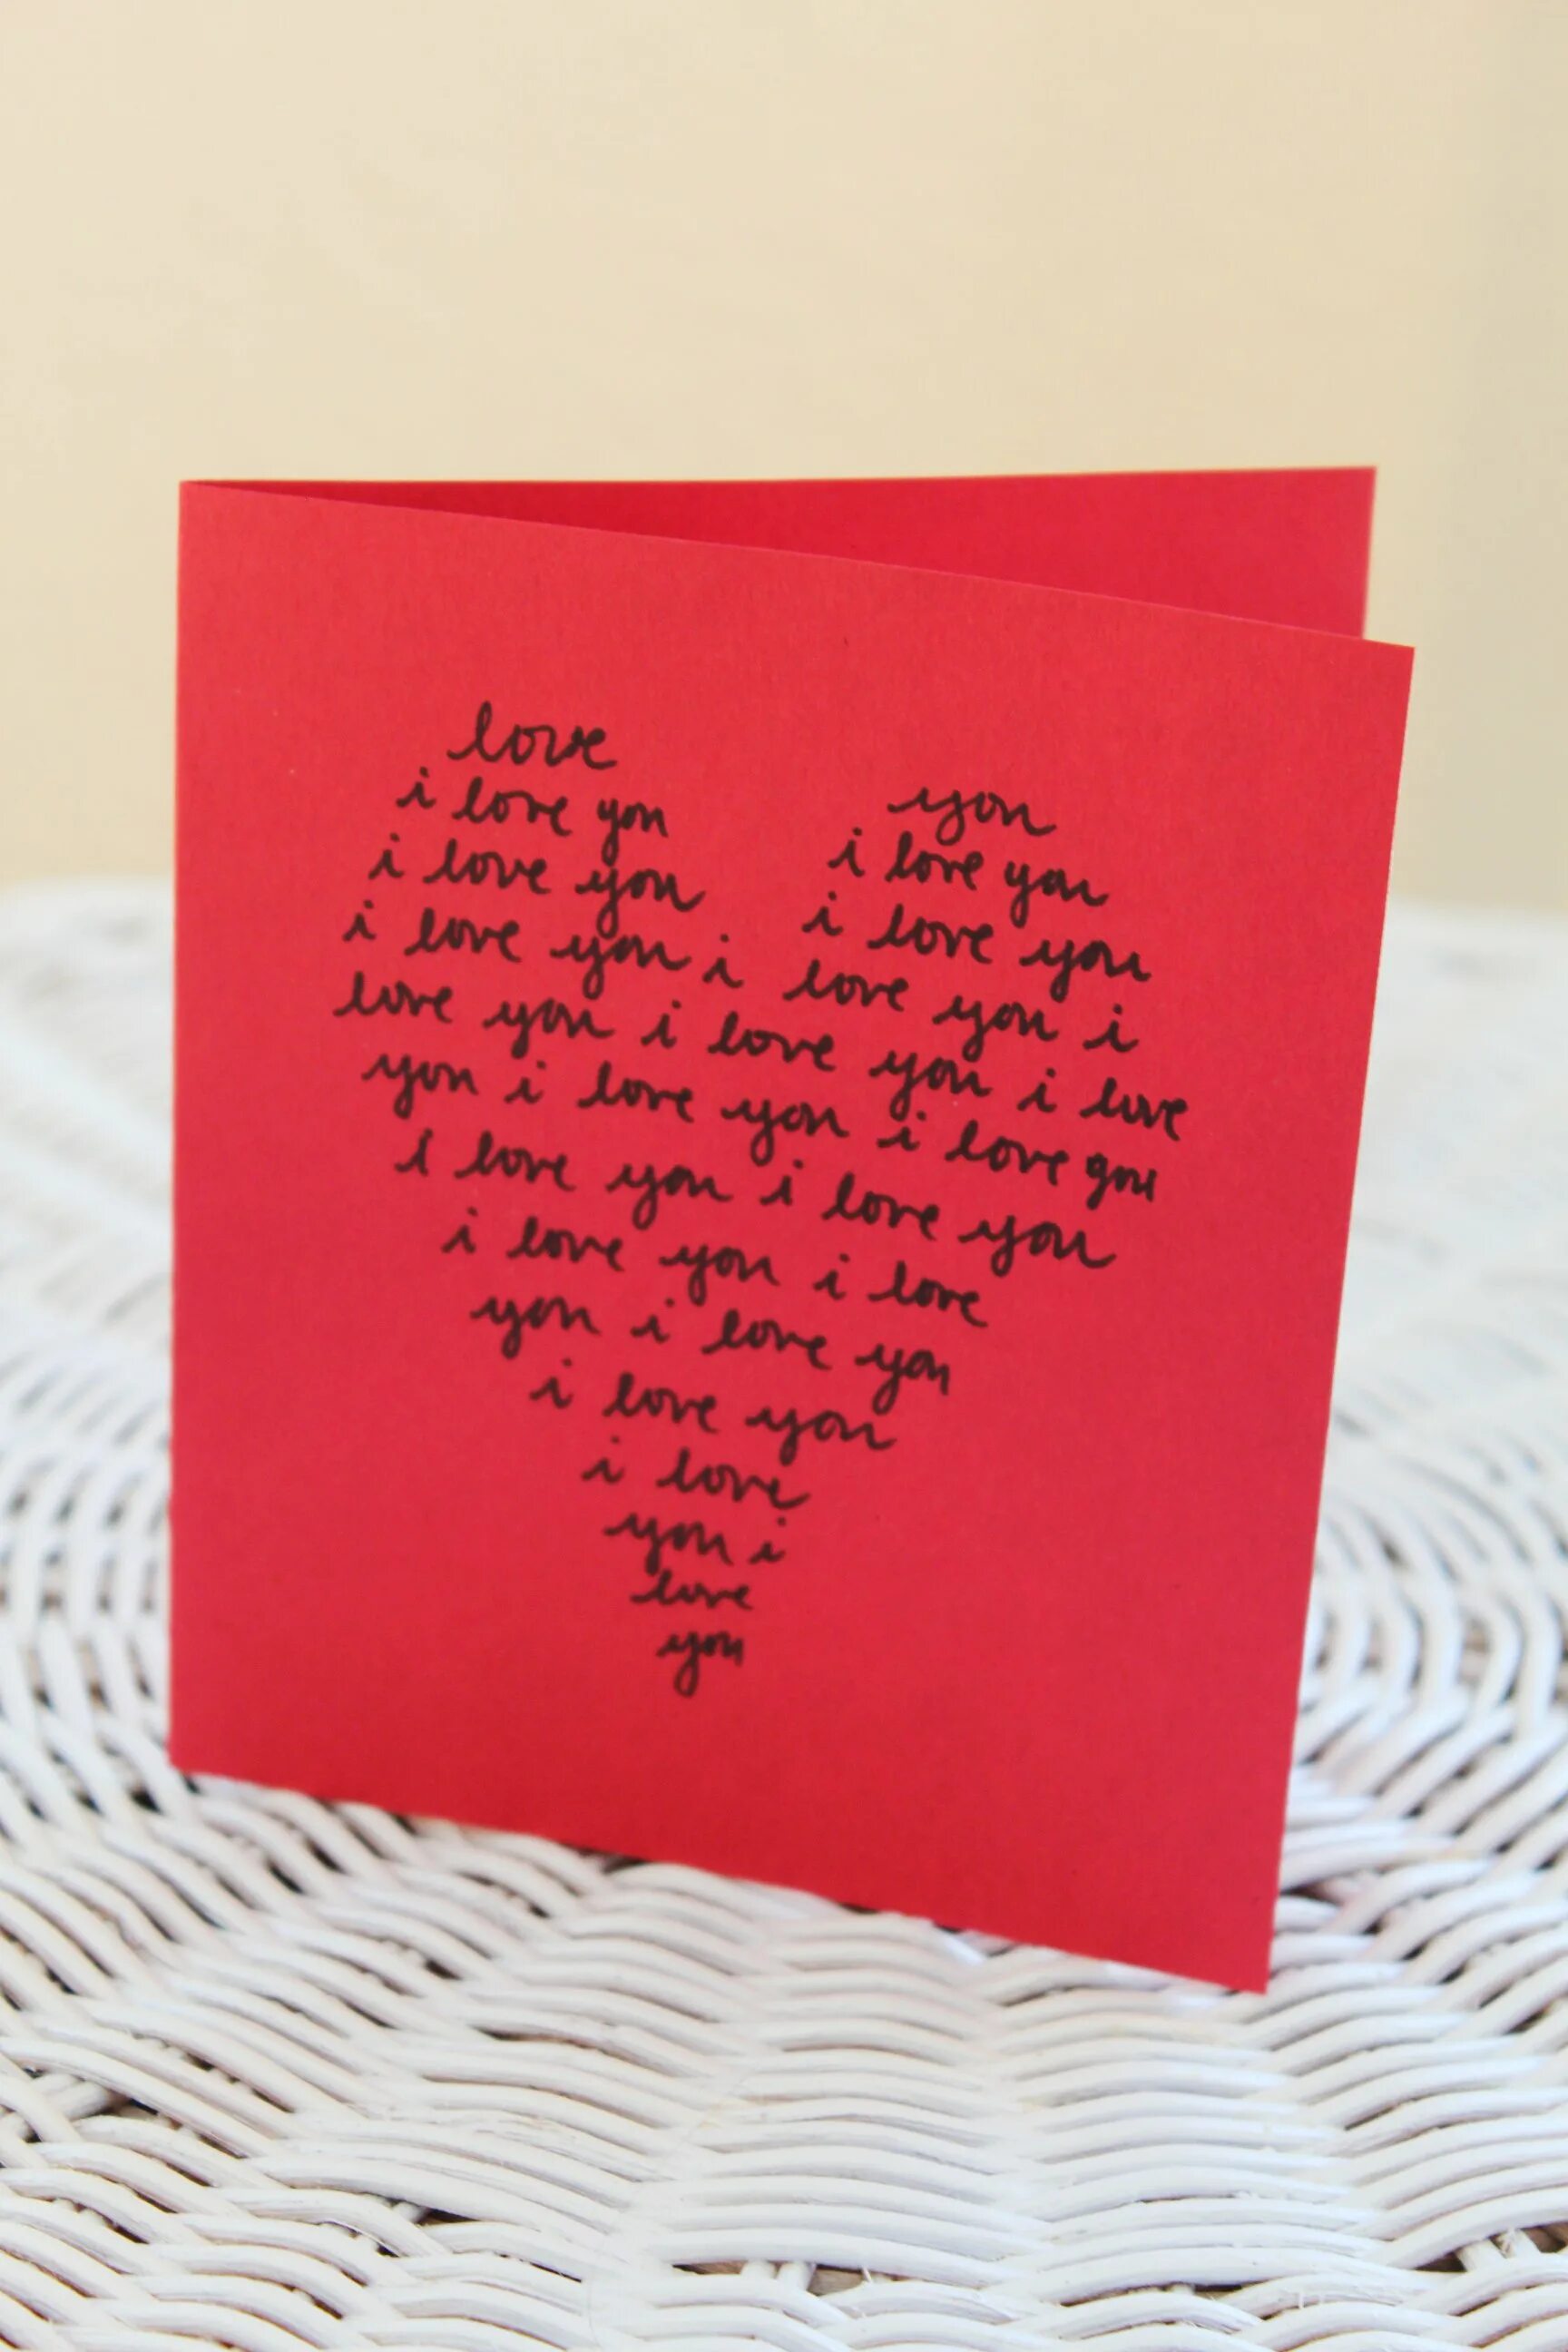 love
i love you you
i love you i love you
i love you i i love you
love you i love you i
you i love you i love
I love you i love you
i love you i love you
you i love
i love you
i love
you i
love
you